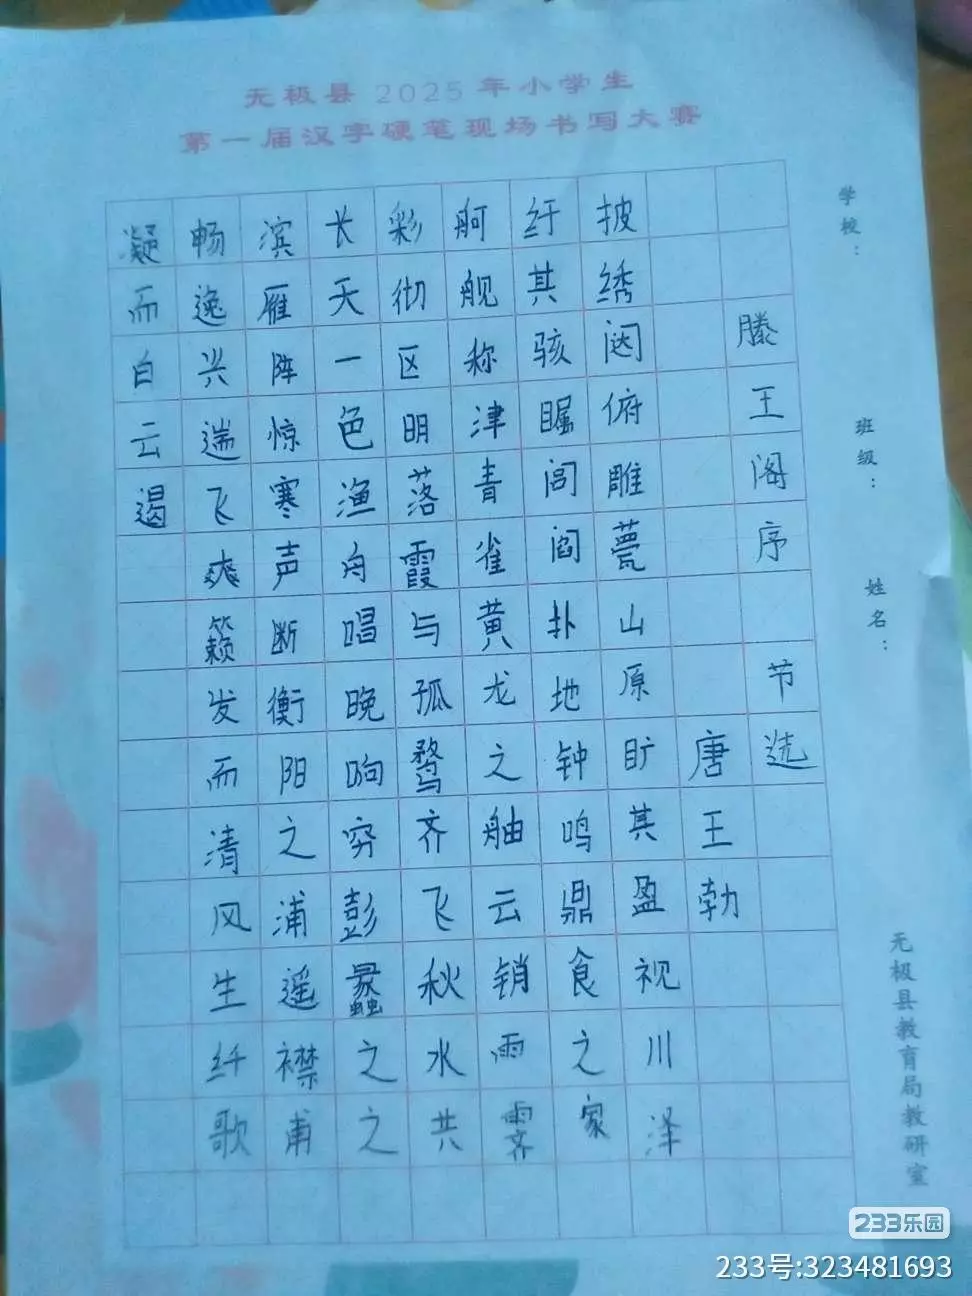 无极县2025年小学生
第一届汉字硬笔现场书写大赛
滕王阁序 节选
唐王勃
披绣闼俯雕甍山原旷其盈视川泽
纡其骇瞩闾阎扑地钟鸣鼎食之家
舸舰称津青雀黄龙之舳云销雨霁
彩彻区明落霞与孤鹜齐飞秋水共
长天一色渔舟唱晚响穷彭蠡之之
滨雁阵惊寒声断衡阳之浦遥襟甫
畅逸兴遄飞爽籁发而清风生纤歌
凝而白云遏
学校：
班级：
姓名：
无极县教育局教研室
233乐园
233号:323481693